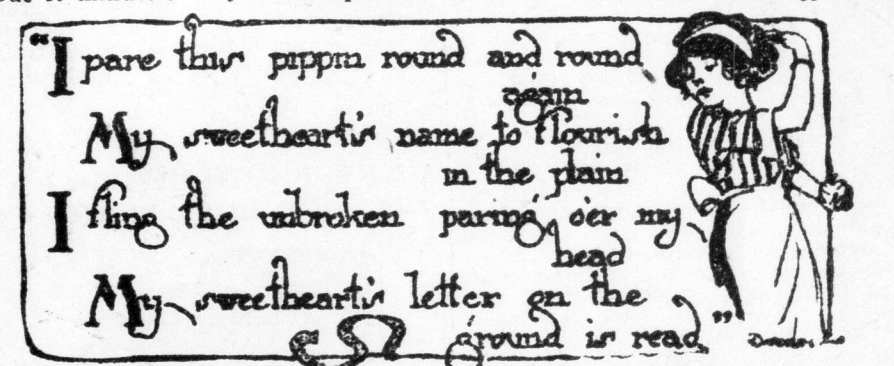 "I pare this pippin round and round
again
My sweetheart's name to flourish
in the plain
I fling the unbroken paring o'er my
head
My sweetheart's letter on the
ground is read"